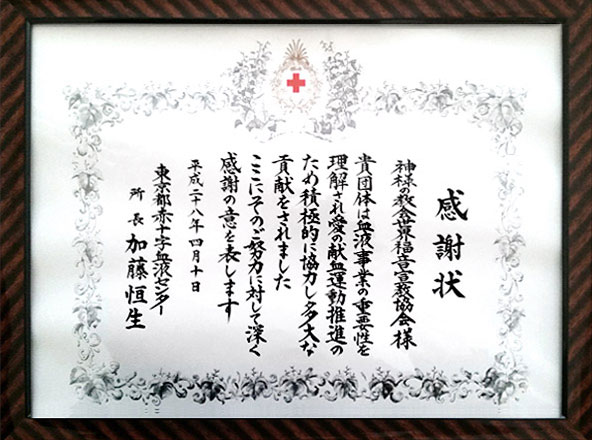 感謝状
神様の教会世界福音宣教協会様
貴団体は血液事業の重要性を
理解され愛の献血運動推進の
ため積極的に協力し多大な
貢献をされました
ここにそのご努力に対して深く
感謝の意を表します
平成二十八年四月十日
東京都赤十字血液センター
所長 加藤恒生